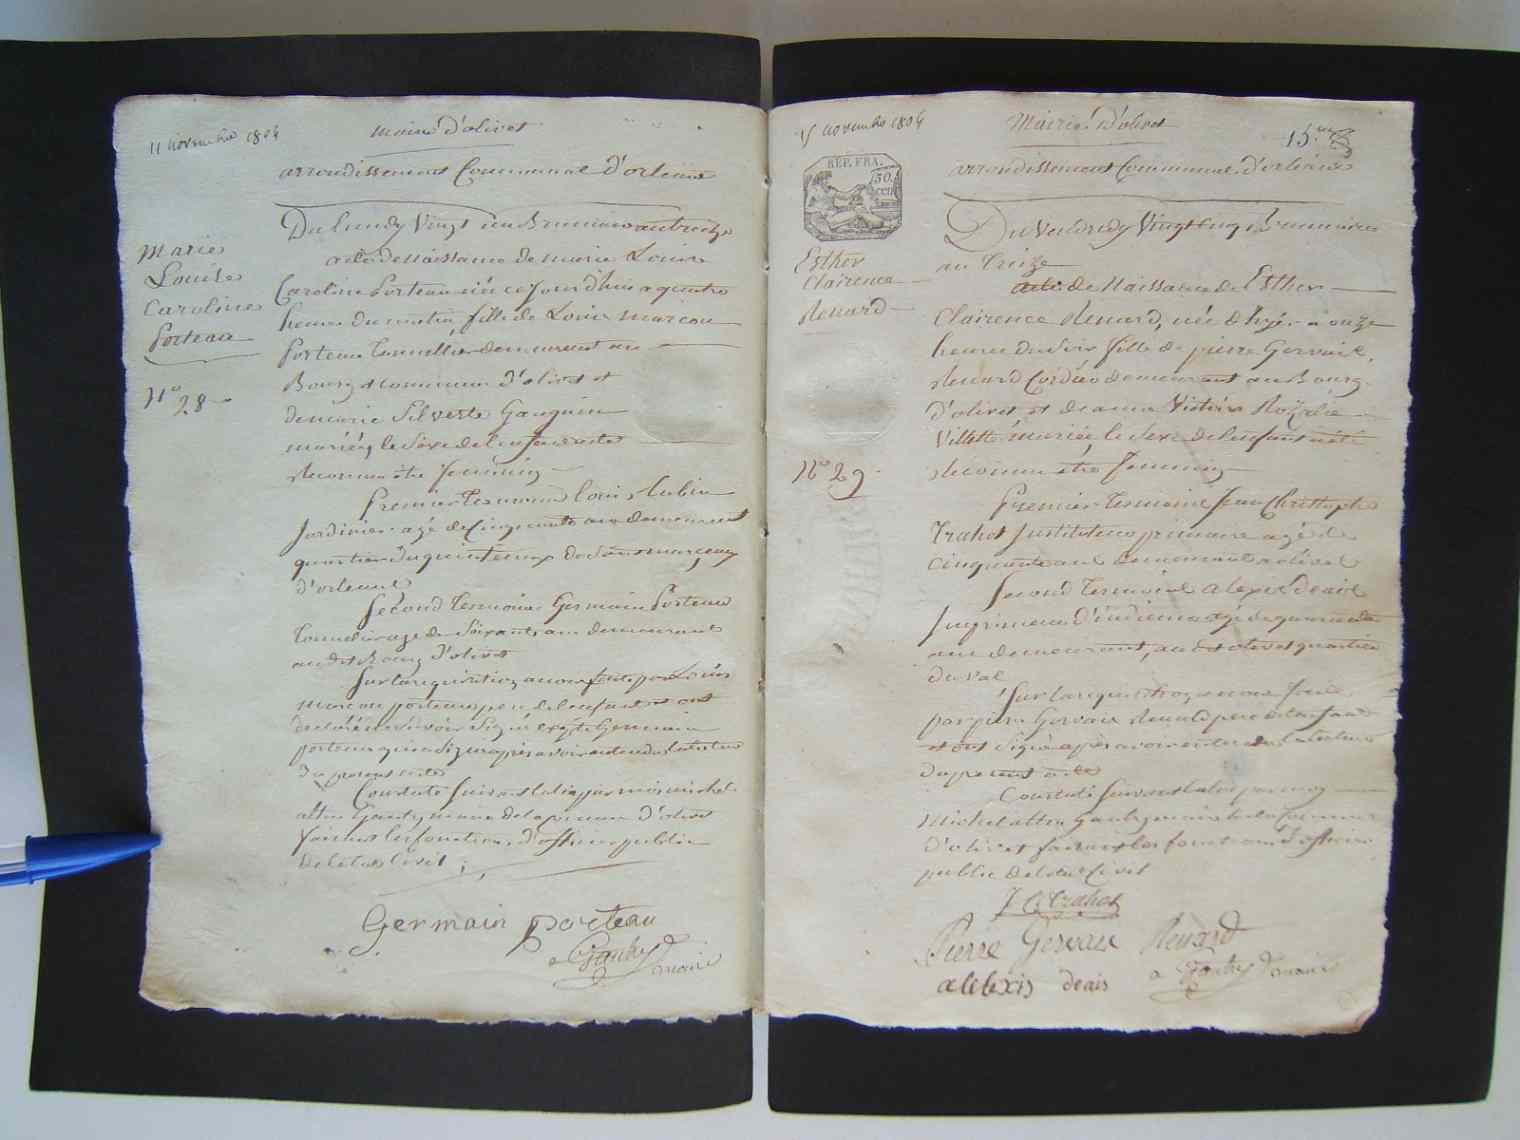 11 novembre 1804
mairie d'olivet
arrondissement Communal d'orleans
Marie
Louise
Caroline
Porteau
N° 28
Du lundy Vingt un Brumaire an treize
acte de naissance de marie Louise
Caroline Porteau née ce jourd'hui a quatre
heures du matin, fille de Louis marcou
Porteau Tonnellier demeurant au
Bourg et commune d'olivet et
de marie Silveste Gauguin
mariés, le sexe de l'enfant a été
reconnu être feminin
Premier Temoin Louis Aubin
Jardinier agé de Cinquante ans demeurant
d'orleans
Second Temoin Germain Porteau
Tonnelier agé de Soixante ans demeurant
au dit Bourg d'olivet
Sur la requisition a nous faite par Louis
marcou porteau pere de l'enfant et ont
declaré ne savoir signé excepté Germain
porteau qui a signé après avoir entendu lecture
du present acte
Constaté suivant la loi par moi michel
Gautry maire de la commune d'olivet
faisant les fonctions d'officier public
de l'etat Civil
Germain porteau
Gautry maire
15 novembre 1804
Mairie d'olivet
15
REP. FRA.
50.
CEN
arrondissement Communal d'orleans
Esther
Clairence
Renard
N° 29
Du Vendredy Vingt cinq Brumaire
an Treize
acte de Naissance de Esther
Clairence Renard, née d'hyer a onze
heures du soir, fille de pierre Gervais
Renard Cordier demeurant au Bourg
d'olivet et de anne Victoire Rozalie
Villette mariés, le sexe de l'enfant a été
reconnu être feminin
Premier Temoin Jean Christophe
Trahot Instituteur primaire agé de
cinquante ans demeurant a olivet
Second Temoin alexis deais
Imprimeur d'indienne agé de quarante
ans demeurant, au dit olivet quartier
du val
Sur la requisition a nous faite
par pierre Gervais Renard pere de l'enfant
et ont signé après avoir entendu lecture
du present acte
Constaté suivant la loi par moy
Michel Gautry maire de la commune
d'olivet faisant les fonctions d'officier
public de l'etat Civil
J C Trahot
Pierre Gervais Renard
alelexis deais
Gautry maire